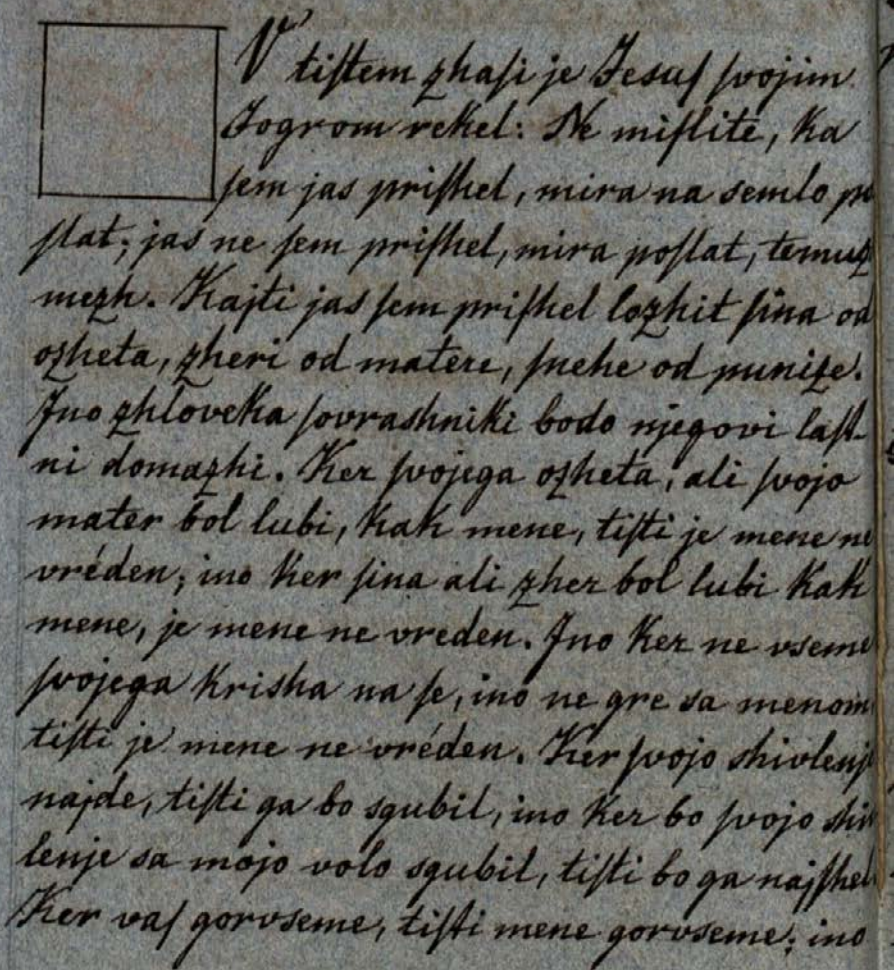 V' tiſtem zhaſi je Jesuſ ſvojim
Jogrom rekel: Ne miſlite, ka
ſem jas priſhel, mira na semlo po
ſlat; jas ne ſem priſhel, mira poſlat, temuz
mezh. Kajti jas ſem priſhel lozhit ſina od
ozheta, zheri od matere, ſnehe od punize.
Ino zhloveka ſovrashniki bodo njegovi laſt-
ni domazhi. Ker ſvojega ozheta, ali ſvojo
mater bol lubi, kak mene, tiſti je mene ne
vréden; ino ker ſina ali zher bol lubi kak
mene, je mene ne vreden. Ino ker ne vseme
ſvojega krisha na ſe, ino ne gre sa menom
tiſti je mene ne vréden. Ker ſvojo shivlenje
najde, tiſti ga bo sgubil, ino ker bo ſvojo shiv
lenje sa mojo volo sgubil, tiſti bo ga najſhel
Ker vaſ gorvseme, tiſti mene gorvseme; ino